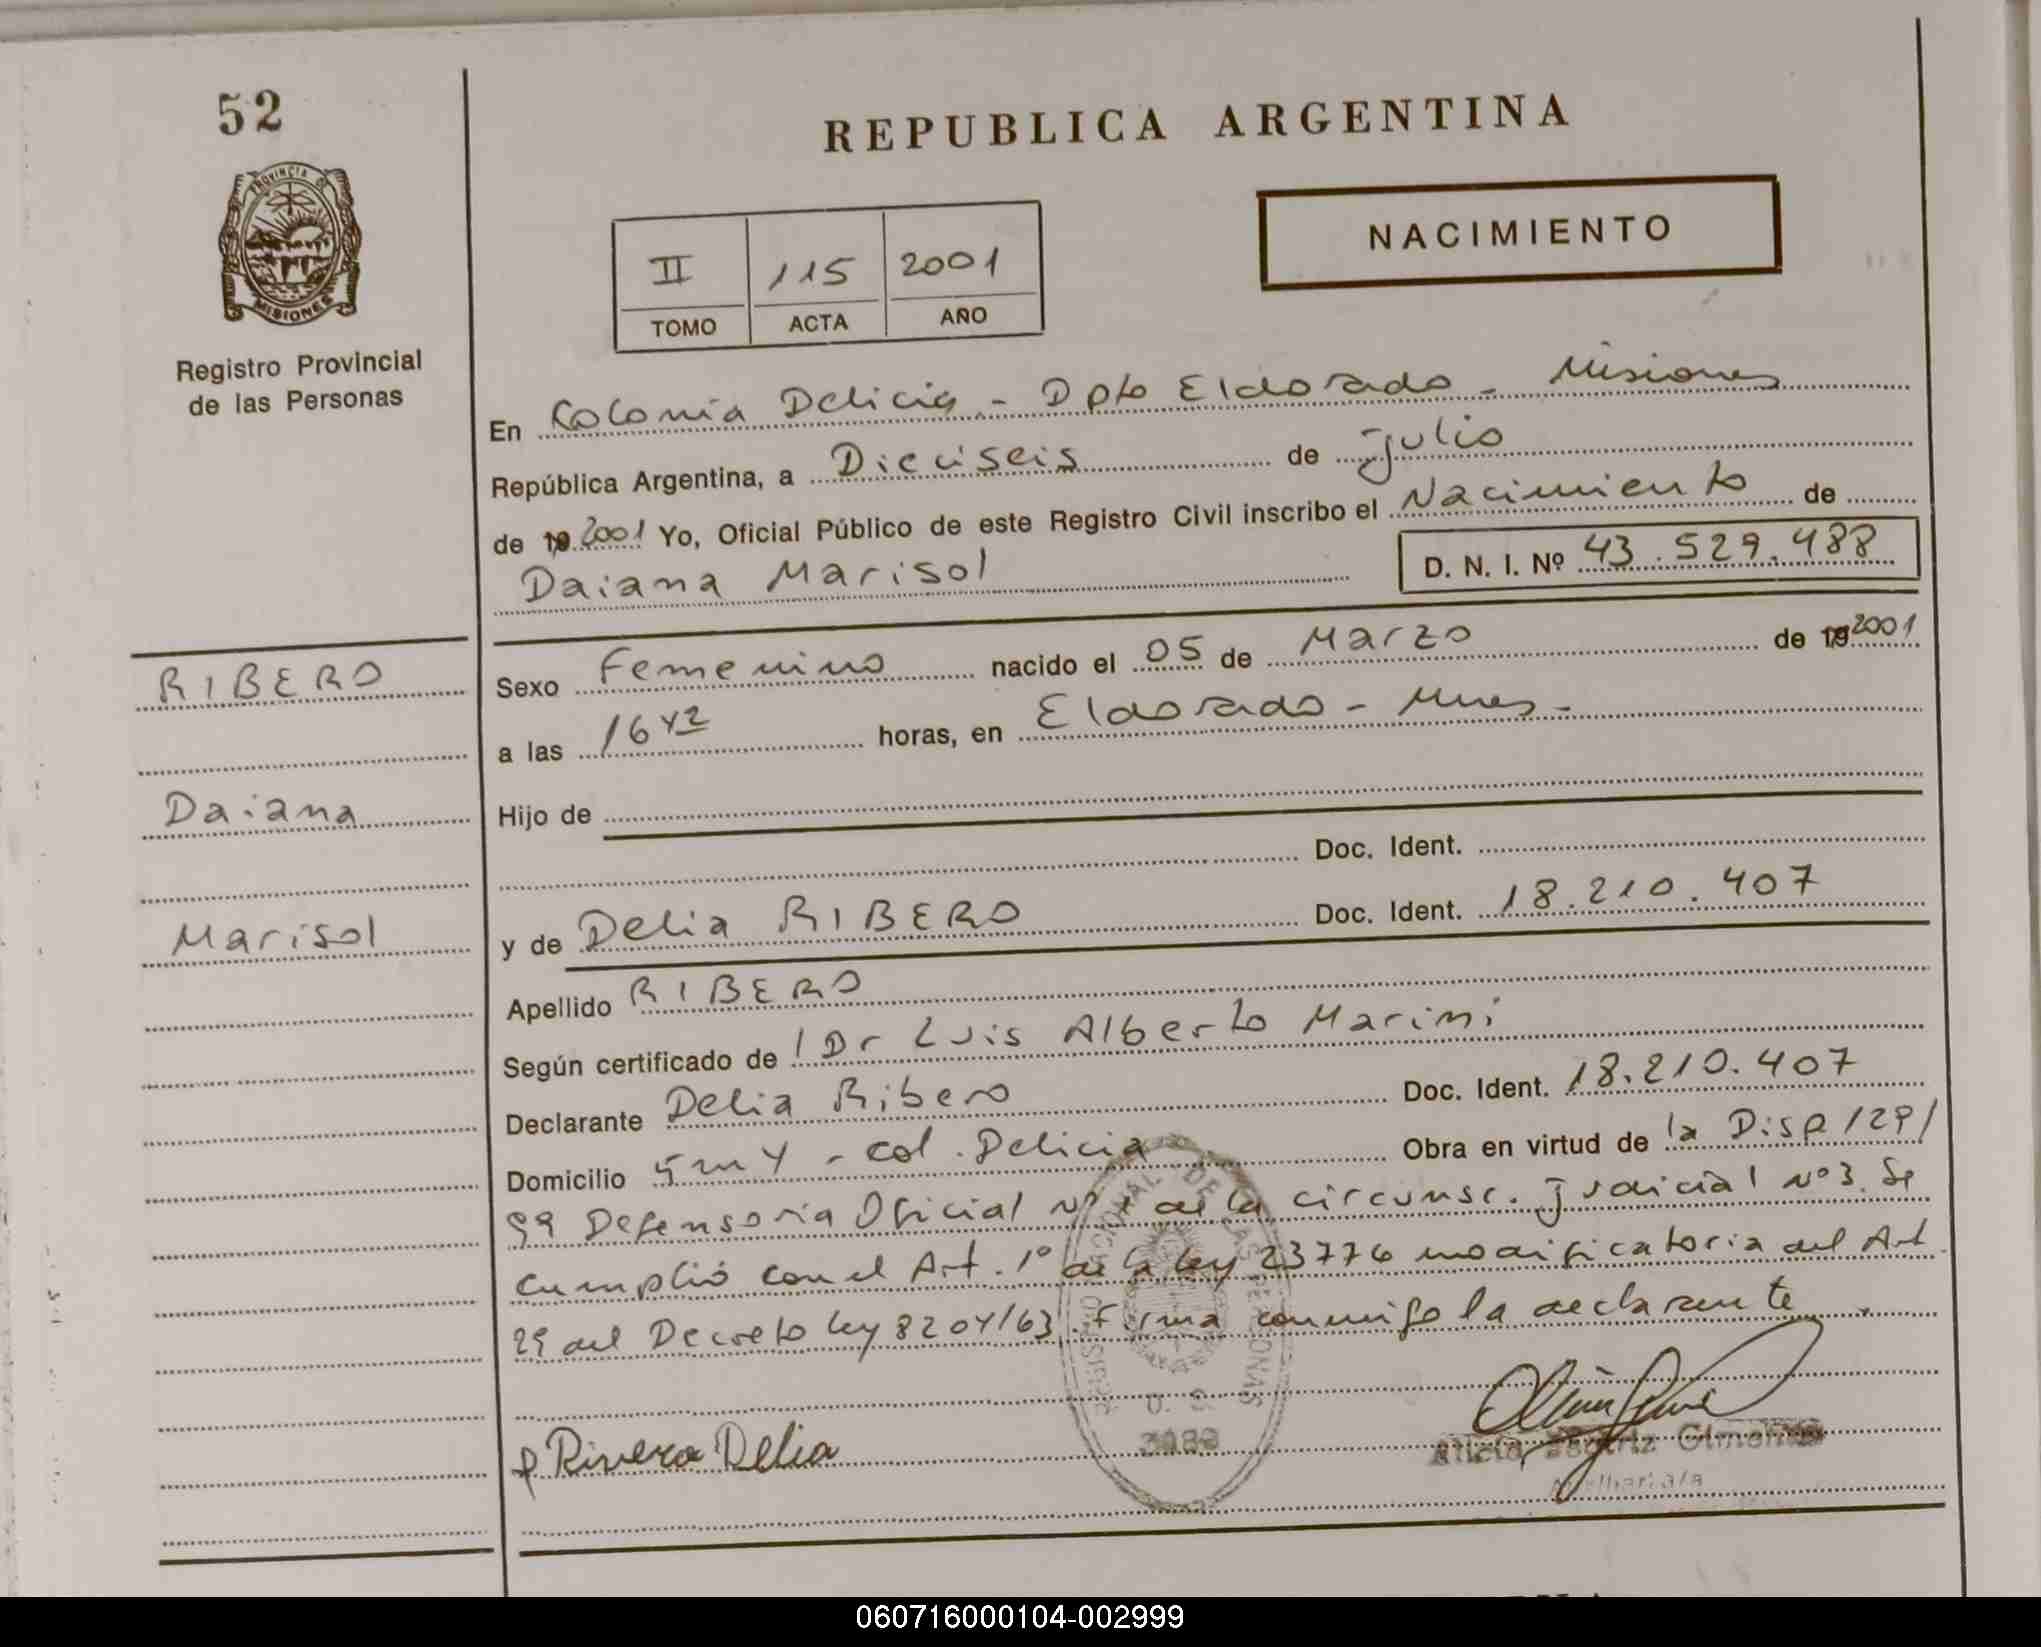 52
PROVINCIA DE
MISIONES
Registro Provincial
de las Personas
REPUBLICA ARGENTINA
NACIMIENTO
II 115 2001
TOMO ACTA AÑO
En Colonia Delicia - Dpto Eldorado - Misiones
República Argentina, a Dieciseis de julio
de 19 2001 Yo, Oficial Público de este Registro Civil inscribo el Nacimiento de
Daiana Marisol D. N. I. Nº 43.529.488
RIBERO
Daiana
Marisol
Sexo Femenino nacido el 05 de Marzo de 19 2001
a las 16 42 horas, en Eldorado - Mnes -
Hijo de
Doc. Ident.
y de Delia RIBERO Doc. Ident. 18.210.407
Apellido RIBERO
Según certificado de Dr Luis Alberto Marini
Declarante Delia Ribero Doc. Ident. 18.210.407
Domicilio 5 m 4 - Col. Delicia Obra en virtud de la Disp 129/
99 Defensoria Oficial Nº 1 de la circunsc. judicial Nº 3. Se
cumplió con el Art. 1º de la ley 23776 modificatoria del Art
29 del Decreto ley 8204/63. Firma conmigo la declarante.
Rivero Delia
REGISTRO NACIONAL DE LAS PERSONAS
O. S.
Alicia Beatriz
060716000104-002999